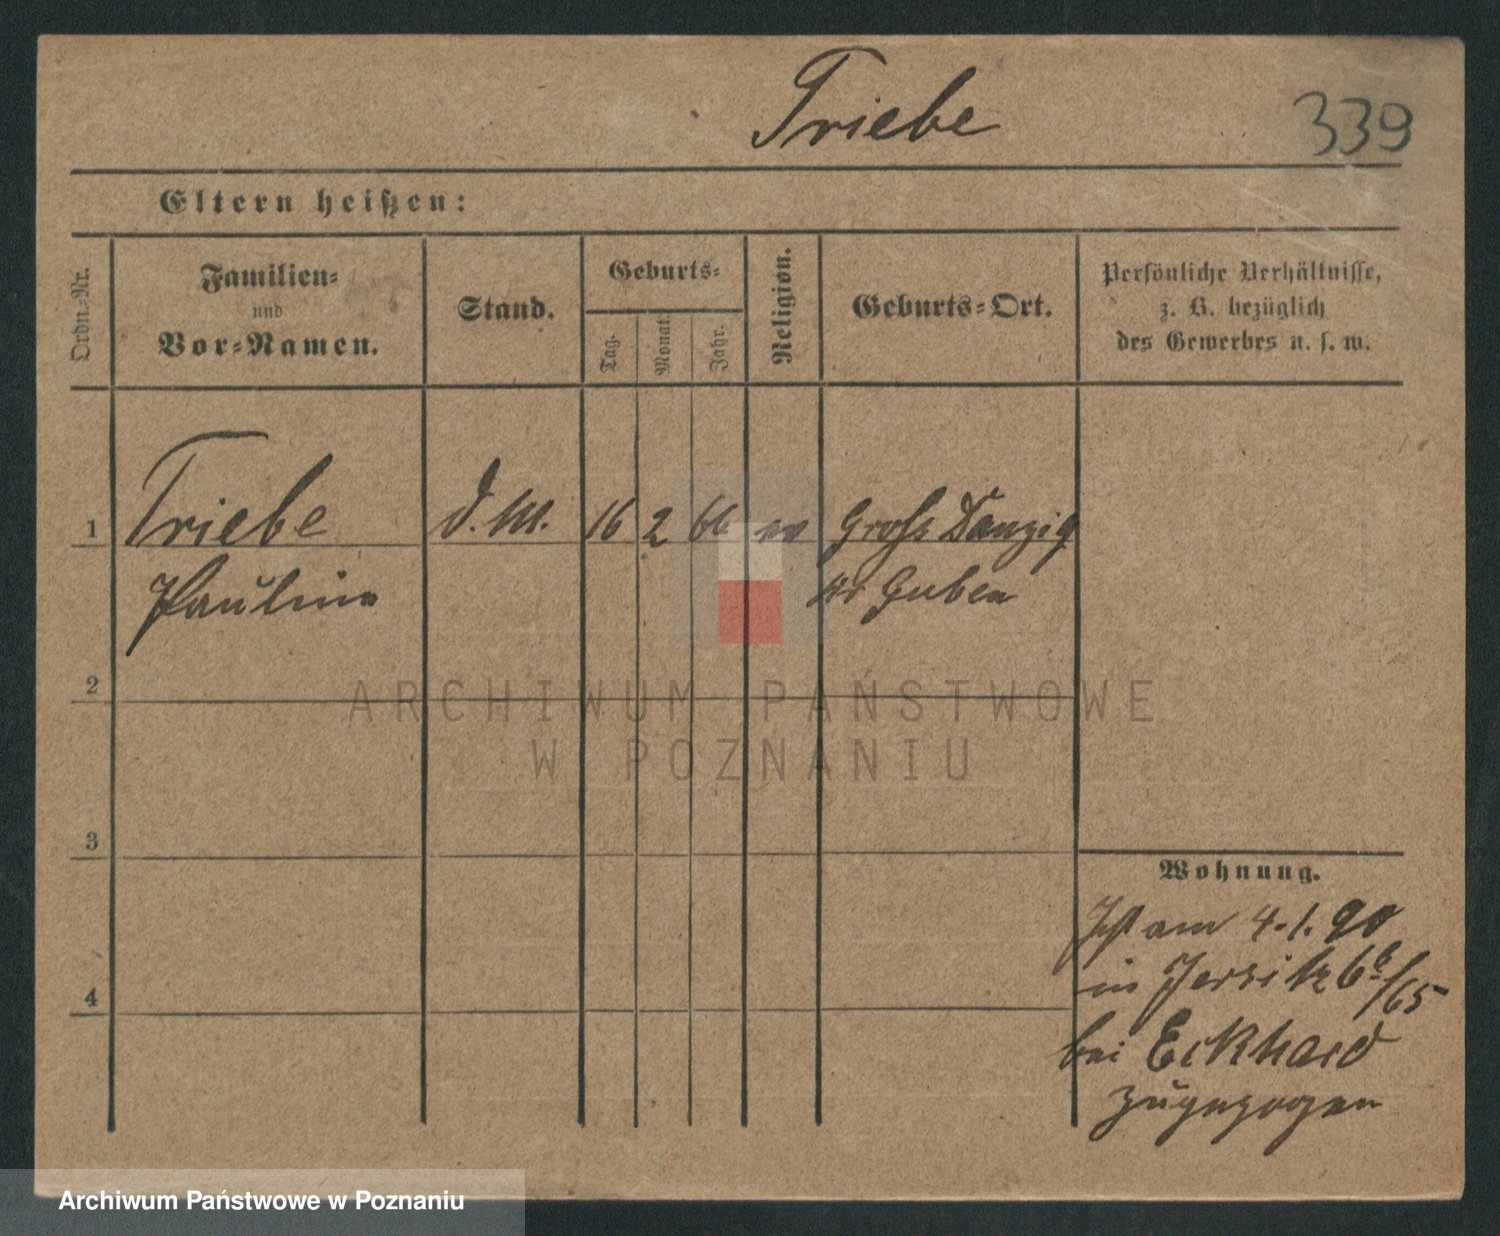 Triebe
339
Eltern heißen:
Ordn.-Nr.
Familien-
und
Vor-Namen.
Stand.
Geburts-
Tag.
Monat.
Jahr.
Religion.
Geburts-Ort.
Persönliche Verhältnisse,
z. B. bezüglich
des Gewerbes u. s. w.
1 Triebe d. M. 16 2 66 ev Groß Danzig
Pauline Kr Guben
2
3
4
Wohnung.
Ist am 4.1.90
in Jersitz 6b/65
bei Eckhard
zugezogen
ARCHIWUM PAŃSTWOWE
W POZNANIU
Archiwum Państwowe w Poznaniu